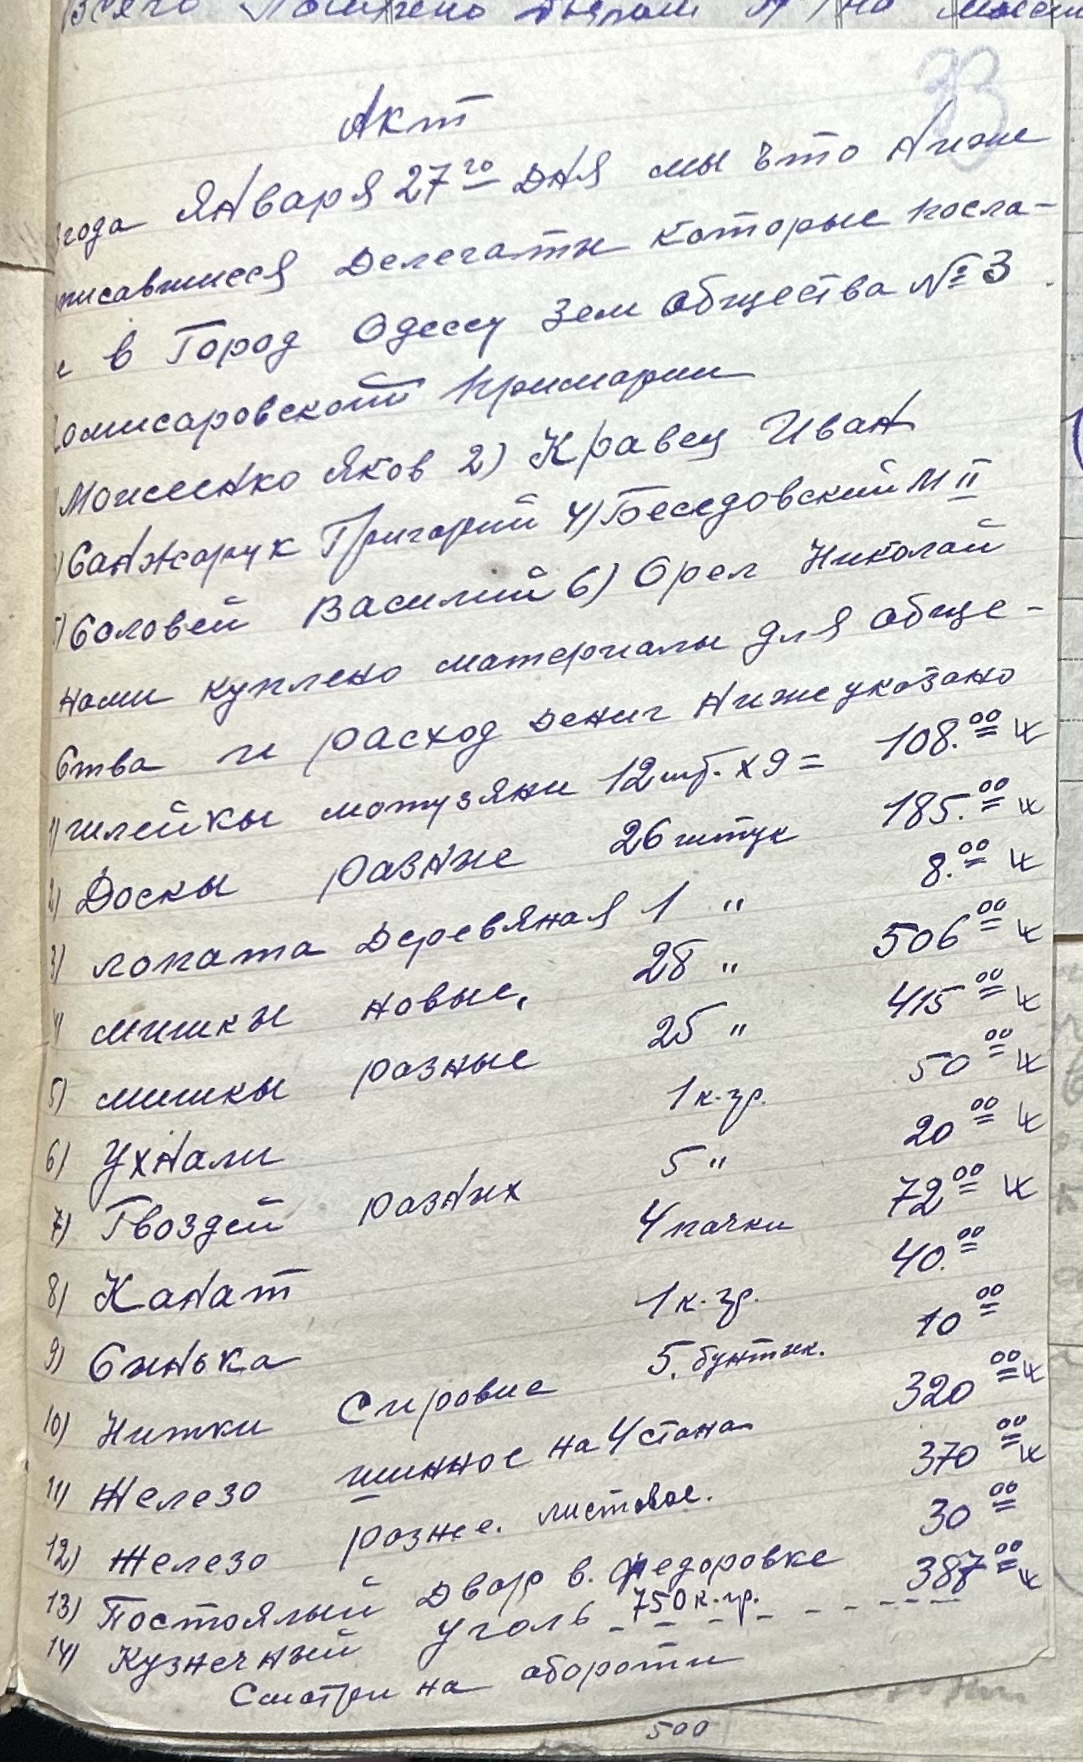 Всего
93
Акт
года Января 27го дня мы что ниже
писавшиеся Делегати которые посла-
в Город Одессу Зем общества № 3
омисаровской Примарии
Моисеенко Яков 2) Кравец Иван
Санжарук Григорий 4) Беседовский М II
5) Соловей Василий 6) Орел Николай
нами куплено материалы для обще-
ства и расход Дениг Ниже указано
1) шлейкы мотузяни 12 шт. х 9 = 108.00
2) Доскы разние 26 штук 185.00
3) лопата Деревяная 1 " 8.00
4) мишкы новые, 28 " 506 00
5) мишкы разные 25 " 415 00
6) Ухнали 1 к.гр. 50 00
7) Гвоздей разних 5 " 20 00
8) Канат 4 пачки 72 00
9) Синька 1 к.гр. 40.00
10) Нитки Сировие 5. бунтик. 10 00
11) Железо шинное на 4 стана 320 00
12) Железо розние. листовое. 370 00
13) Постоялый Двор в. Федоровке 30 00
14) Кузнечний уголь 750 к.гр. 387 00
Смотри на обороти
500